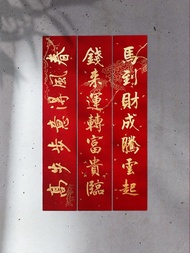 馬到財成騰雲起
錢來運轉富貴臨
春風得意步步高